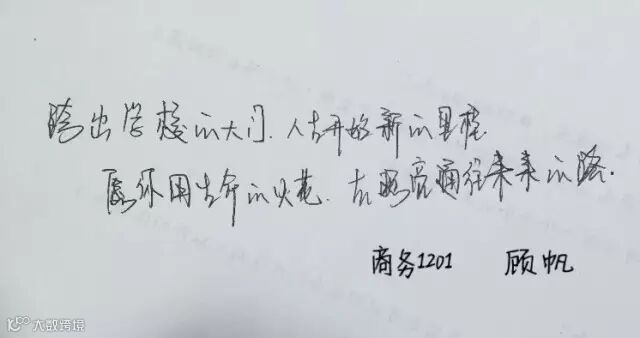 跨出学校的大门、人生开始新的里程.
愿你用生命的火花、去照亮通往未来的路.
商务1201 顾帆
大数跨境